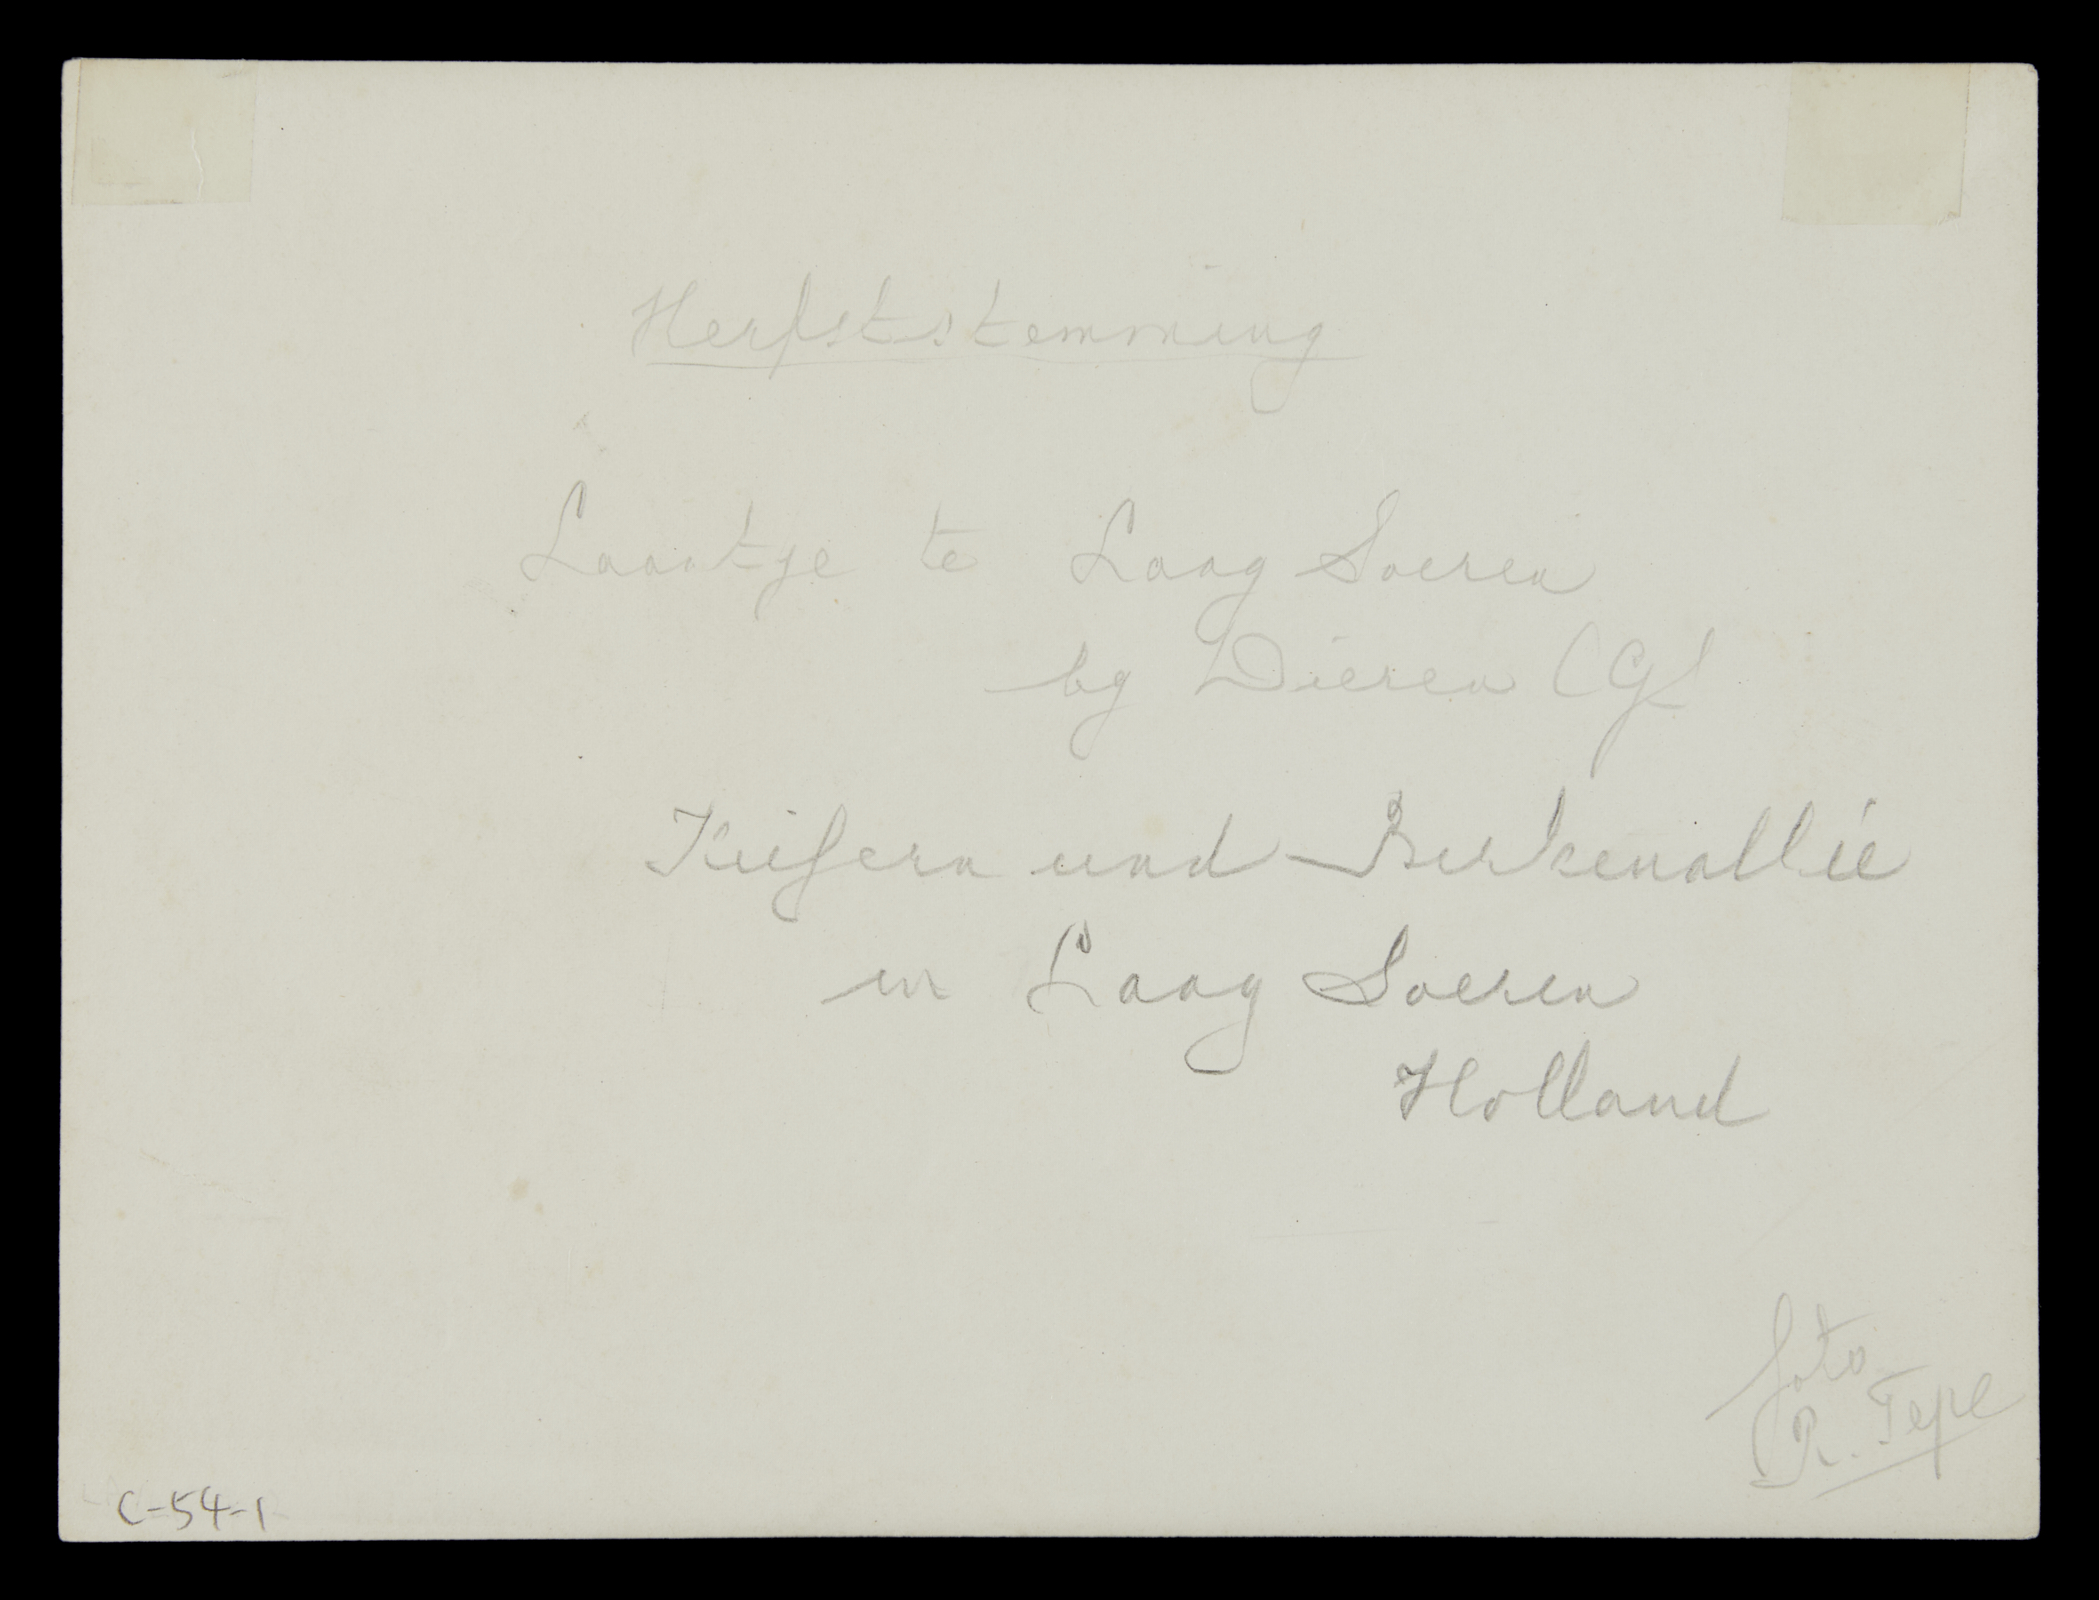 Herfststemming
Laantje te Laag Soeren
by Dieren (G)
Kiefern und Birkenallee
in Laag Soeren
Holland
foto
R. Tepe
C-54-1